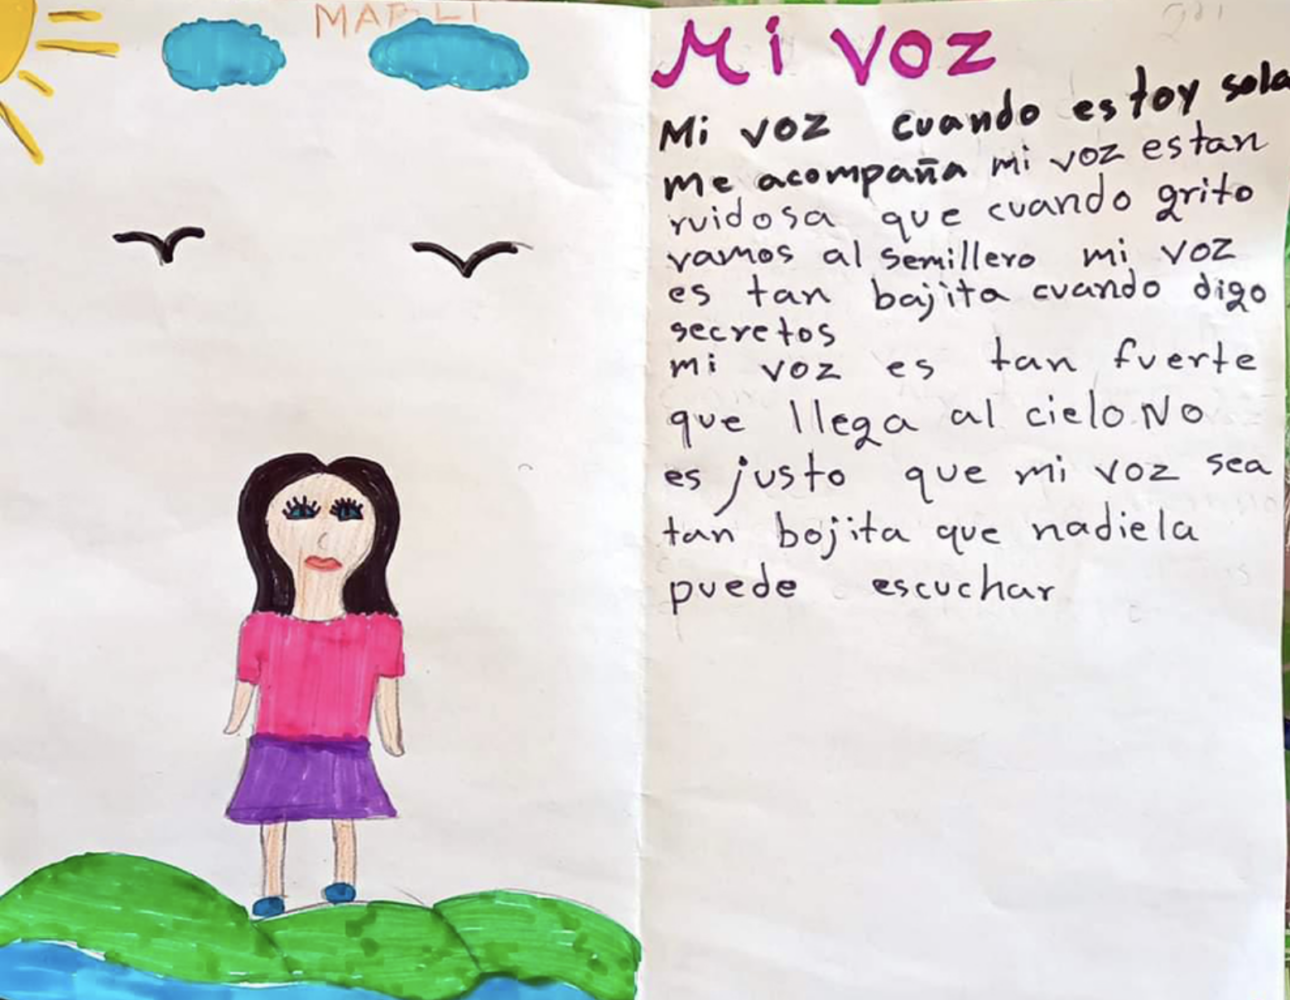 MARLI
Mi voz
Mi voz cuando estoy sola
me acompaña mi voz estan
ruidosa que cuando grito
vamos al semillero mi voz
es tan bajita cuando digo
secretos
mi voz es tan fuerte
que llega al cielo. No
es justo que mi voz sea
tan bojita que nadiela
puede escuchar